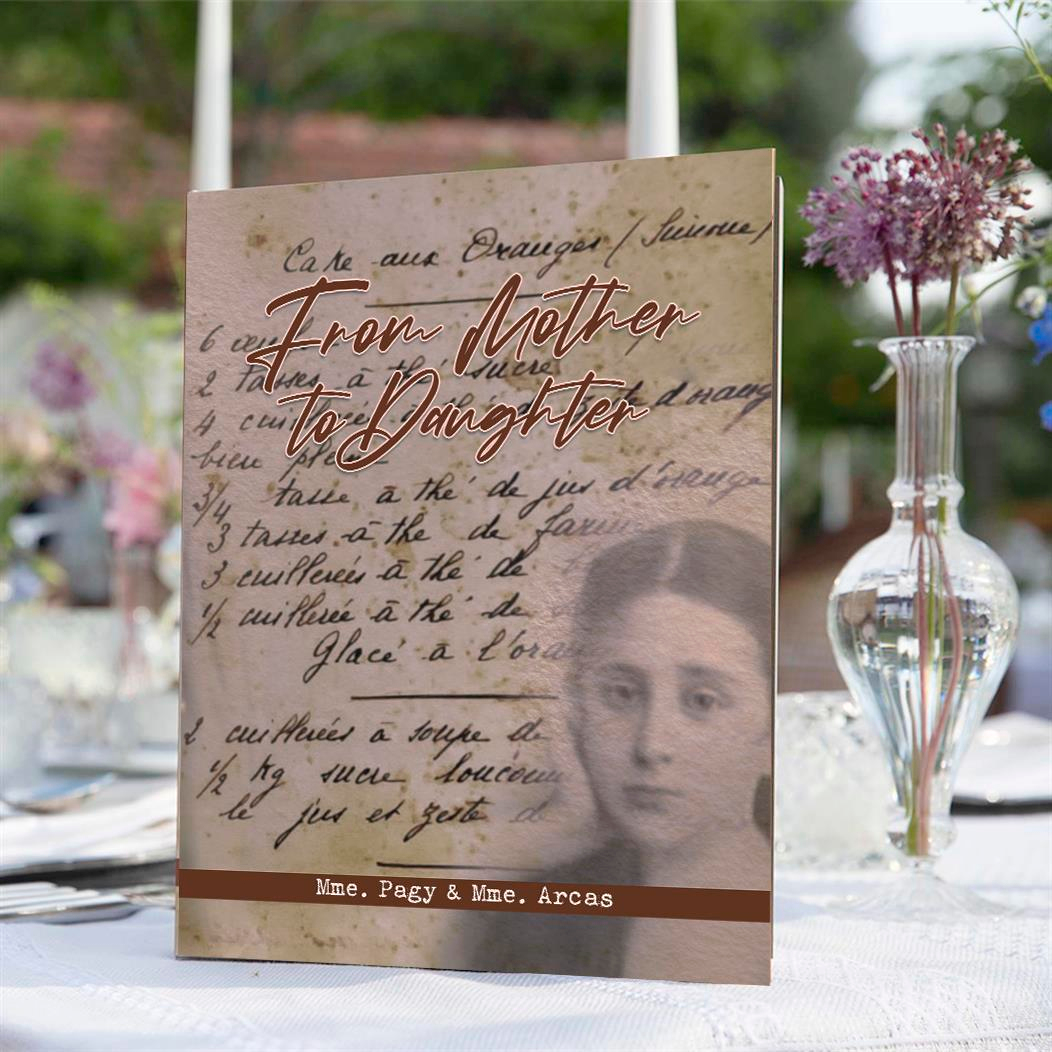 Cake aux Oranges (Simone)
From Mother
to Daughter
6
2 tasses à thé sucre
4 d'orange
bien
3/4 tasse à thé de jus d'orange
3 tasses à thé de farine
3 cuillerées à thé de
1/2 cuillerée à thé de
Glacé à
2 cuillerées à soupe de
1/2 kg sucre
le jus et zeste de
Mme. Pagy & Mme. Arcas